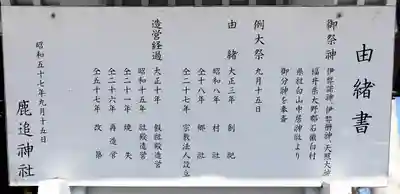 由緒書
御祭神 伊弉諾神、伊弉冊神、天照大神
福井県大野郡石徹白村
県社白山中居神社より
御分神を奉斎
例大祭 九月十五日
由緒 大正三年 創祀
昭和八年 村社
仝十八年 郷社
仝二十七年 宗教法人設立
造営経過 大正十年 仮社殿造営
昭和十五年 社殿造営
仝二十一年 焼失
仝二十六年 再造営
仝五十七年 改築
昭和五十七年九月十五日
鹿追神社